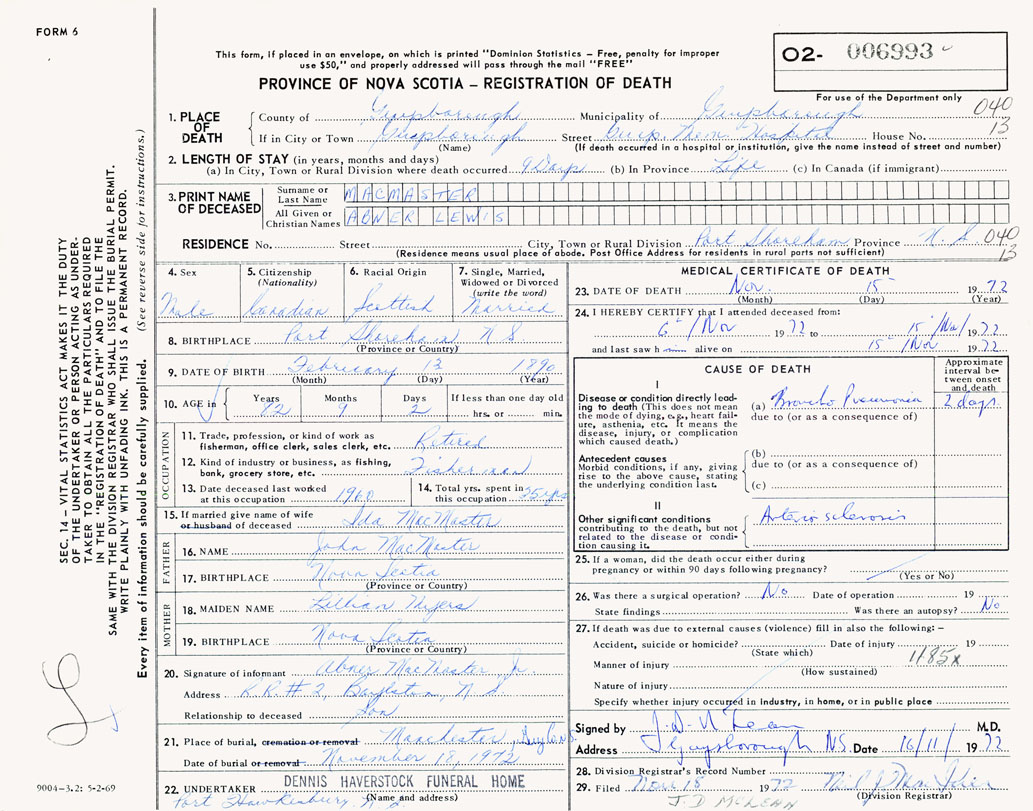 FORM 6
This form, if placed in an envelope, on which is printed "Dominion Statistics – Free, penalty for improper
use $50," and properly addressed will pass through the mail "FREE"
PROVINCE OF NOVA SCOTIA – REGISTRATION OF DEATH
O2- 006993
For use of the Department only
040
13
1. PLACE OF DEATH
County of Guysborough Municipality of Guysborough
If in City or Town Guysborough Street Guys. Mem. Hospital House No.
(Name) (If death occurred in a hospital or institution, give the name instead of street and number)
2. LENGTH OF STAY (in years, months and days)
(a) In City, Town or Rural Division where death occurred 9 Days (b) In Province Life (c) In Canada (if immigrant)
3. PRINT NAME OF DECEASED
Surname or Last Name MACMASTER
All Given or Christian Names ABNER LEWIS
RESIDENCE No. Street City, Town or Rural Division Port Shoreham Province N.S. 040
(Residence means usual place of abode. Post Office Address for residents in rural parts not sufficient) 13
4. Sex
Male
5. Citizenship (Nationality)
Canadian
6. Racial Origin
Scottish
7. Single, Married, Widowed or Divorced (write the word)
Married
8. BIRTHPLACE Port Shoreham N S
(Province or Country)
9. DATE OF BIRTH February 13 1890
(Month) (Day) (Year)
10. AGE in
Years Months Days If less than one day old
9 2 hrs. or min.
OCCUPATION
11. Trade, profession, or kind of work as
fisherman, office clerk, sales clerk, etc. Retired
12. Kind of industry or business, as fishing,
bank, grocery store, etc. Fisherman
13. Date deceased last worked
at this occupation 1960
14. Total yrs. spent in
this occupation yrs
15. If married give name of wife
or husband of deceased Ida MacMaster
FATHER
16. NAME John MacMaster
17. BIRTHPLACE Nova Scotia
(Province or Country)
MOTHER
18. MAIDEN NAME Lillian Myers
19. BIRTHPLACE Nova Scotia
(Province or Country)
20. Signature of informant Abner MacMaster Jr.
Address R.R.# 2, Boylston, N S
Relationship to deceased Son
21. Place of burial, cremation or removal Manchester,
Date of burial or removal November 18, 1972
22. UNDERTAKER DENNIS HAVERSTOCK FUNERAL HOME
Port Hawkesbury, N.S. (Name and address)
MEDICAL CERTIFICATE OF DEATH
23. DATE OF DEATH Nov. 15 1972
(Month) (Day) (Year)
24. I HEREBY CERTIFY that I attended deceased from:
6 / Nov 1972 to 15 / Nov / 1972
and last saw h im alive on 15 / Nov 1972
CAUSE OF DEATH
Approximate interval between onset and death
I
Disease or condition directly leading
to death (This does not mean
the mode of dying, e.g., heart failure,
asthenia, etc. It means the
disease, injury, or complication
which caused death.)
(a) Broncho Pneumonia 2 days
due to (or as a consequence of)
Antecedent causes
Morbid conditions, if any, giving
rise to the above cause, stating
the underlying condition last.
(b)
due to (or as a consequence of)
(c)
II
Other significant conditions
contributing to the death, but not
related to the disease or condition
causing it.
Arterio sclerosis
25. If a woman, did the death occur either during
pregnancy or within 90 days following pregnancy?
(Yes or No)
26. Was there a surgical operation? No Date of operation 19
State findings Was there an autopsy? No
27. If death was due to external causes (violence) fill in also the following: –
Accident, suicide or homicide? Date of injury 19
(State which)
Manner of injury
(How sustained)
Nature of injury
Specify whether injury occurred in Industry, in home, or in public place
Signed by J. D. McLean M.D.
Address Guysborough N.S. Date 16/11/ 1972
28. Division Registrar's Record Number
29. Filed Nov. 18 1972
(Division Registrar)
J. D. McLEAN
SEC. 14 – VITAL STATISTICS ACT MAKES IT THE DUTY
OF THE UNDERTAKER OR PERSON ACTING AS UNDERTAKER
TO OBTAIN ALL THE PARTICULARS REQUIRED
IN THE "REGISTRATION OF DEATH" AND TO FILE THE
SAME WITH THE DIVISION REGISTRAR WHO SHALL ISSUE THE BURIAL PERMIT.
WRITE PLAINLY WITH UNFADING INK. THIS IS A PERMANENT RECORD.
Every item of information should be carefully supplied. (See reverse side for instructions.)
9004–3.2: 5-2-69